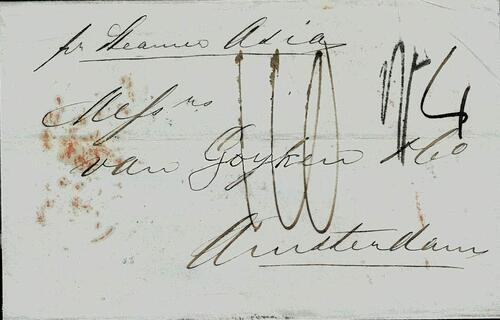 pr Steamer Asia
Messrs
van Goyken & Co
Amsterdam